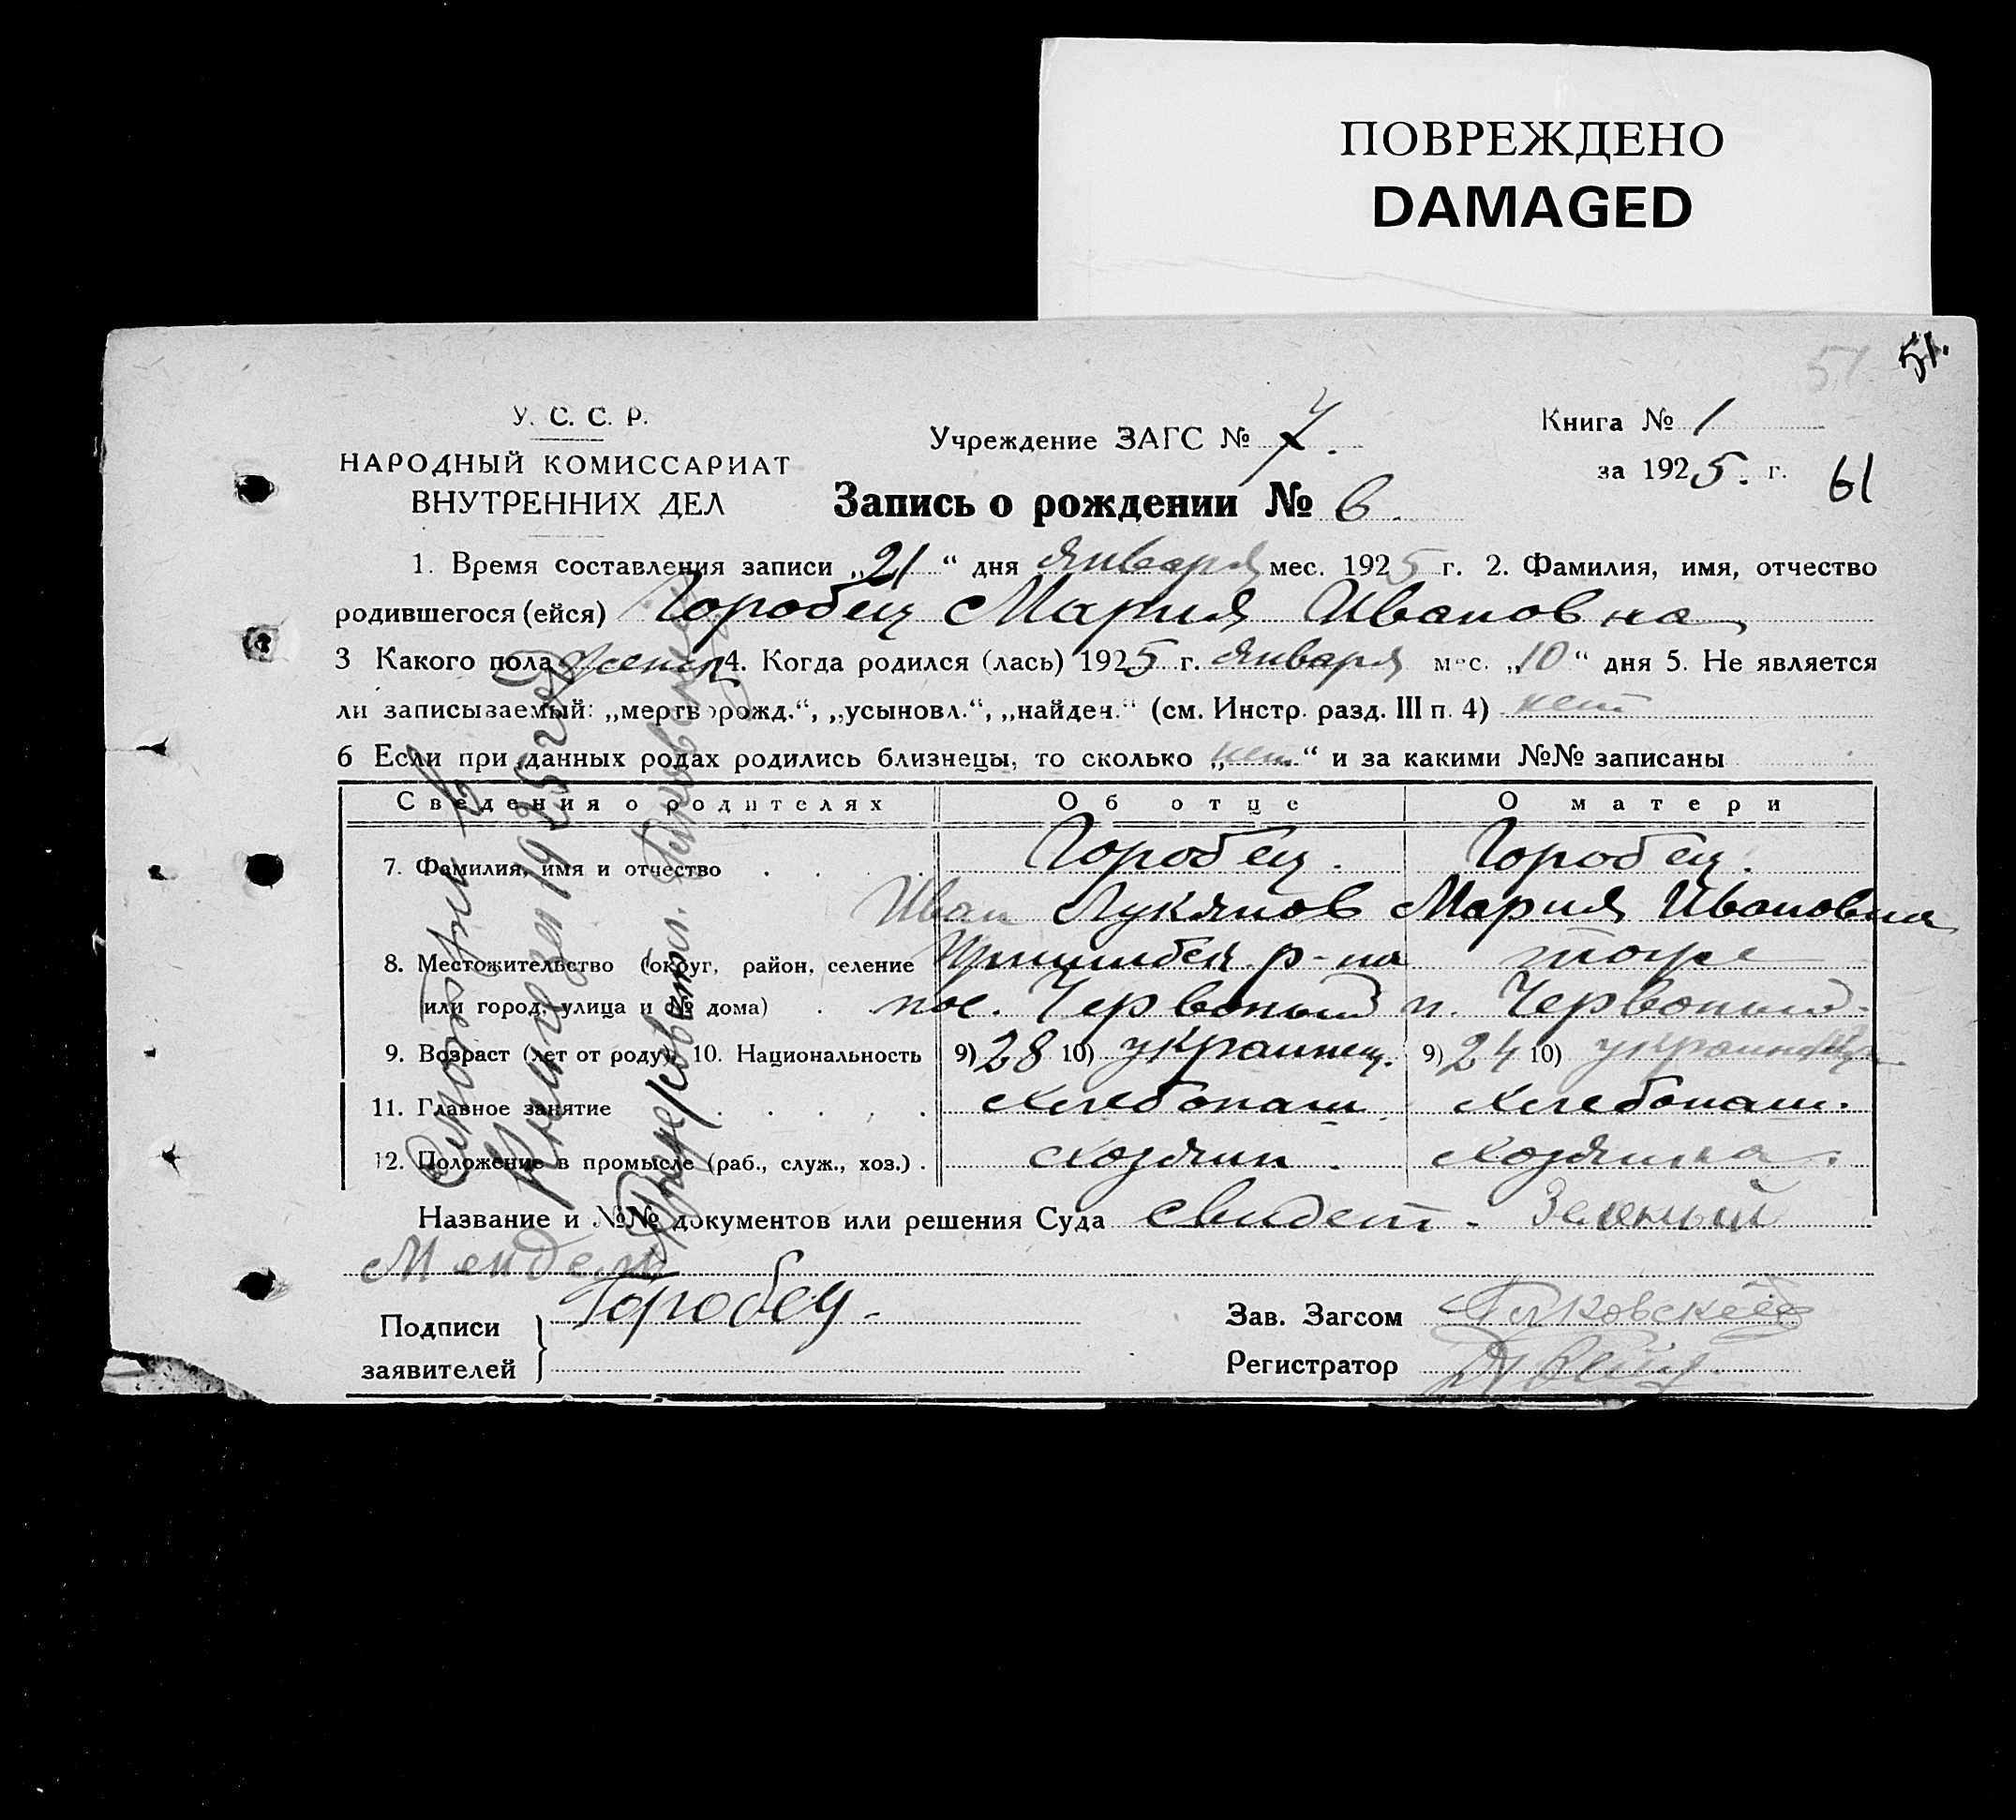 ПОВРЕЖДЕНО
DAMAGED
51 51.
У. С. С. Р.
НАРОДНЫЙ КОМИССАРИАТ
ВНУТРЕННИХ ДЕЛ
Учреждение ЗАГС № 7.
Книга № 1
за 1925. г.
61
Запись о рождении № 6.
1. Время составления записи „21“ дня января мес. 1925 г. 2. Фамилия, имя, отчество
родившегося (ейся) Горобец Мария Ивановна
3 Какого пола женск 4. Когда родился (лась) 1925 г. января мес. „10“ дня 5. Не является
ли записываемый: „мертворожд.“, „усыновл.“, „найден.“ (см. Инстр. разд. III п. 4) нет
6 Если при данных родах родились близнецы, то сколько „нет“ и за какими №№ записаны
Сведения о родителях Об отце О матери
7. Фамилия, имя и отчество Горобец. Горобец.
Иван Лукянов Мария Ивановна
8. Местожительство (округ, район, селение р-на тоже
или город, улица и № дома) пос. Червоный п. Червоный
9. Возраст (лет от роду) 10. Национальность 9) 28 10) украинец. 9) 24 10)
11. Главное занятие хлебопаш. хлебопаш.
12. Положение в промысле (раб., служ., хоз.) хозяин. хозяйка.
Название и №№ документов или решения Суда свидет. Зеленый
Мендель
Подписи
заявителей
Горобец
Зав. Загсом
Регистратор
Книга за 1925 год